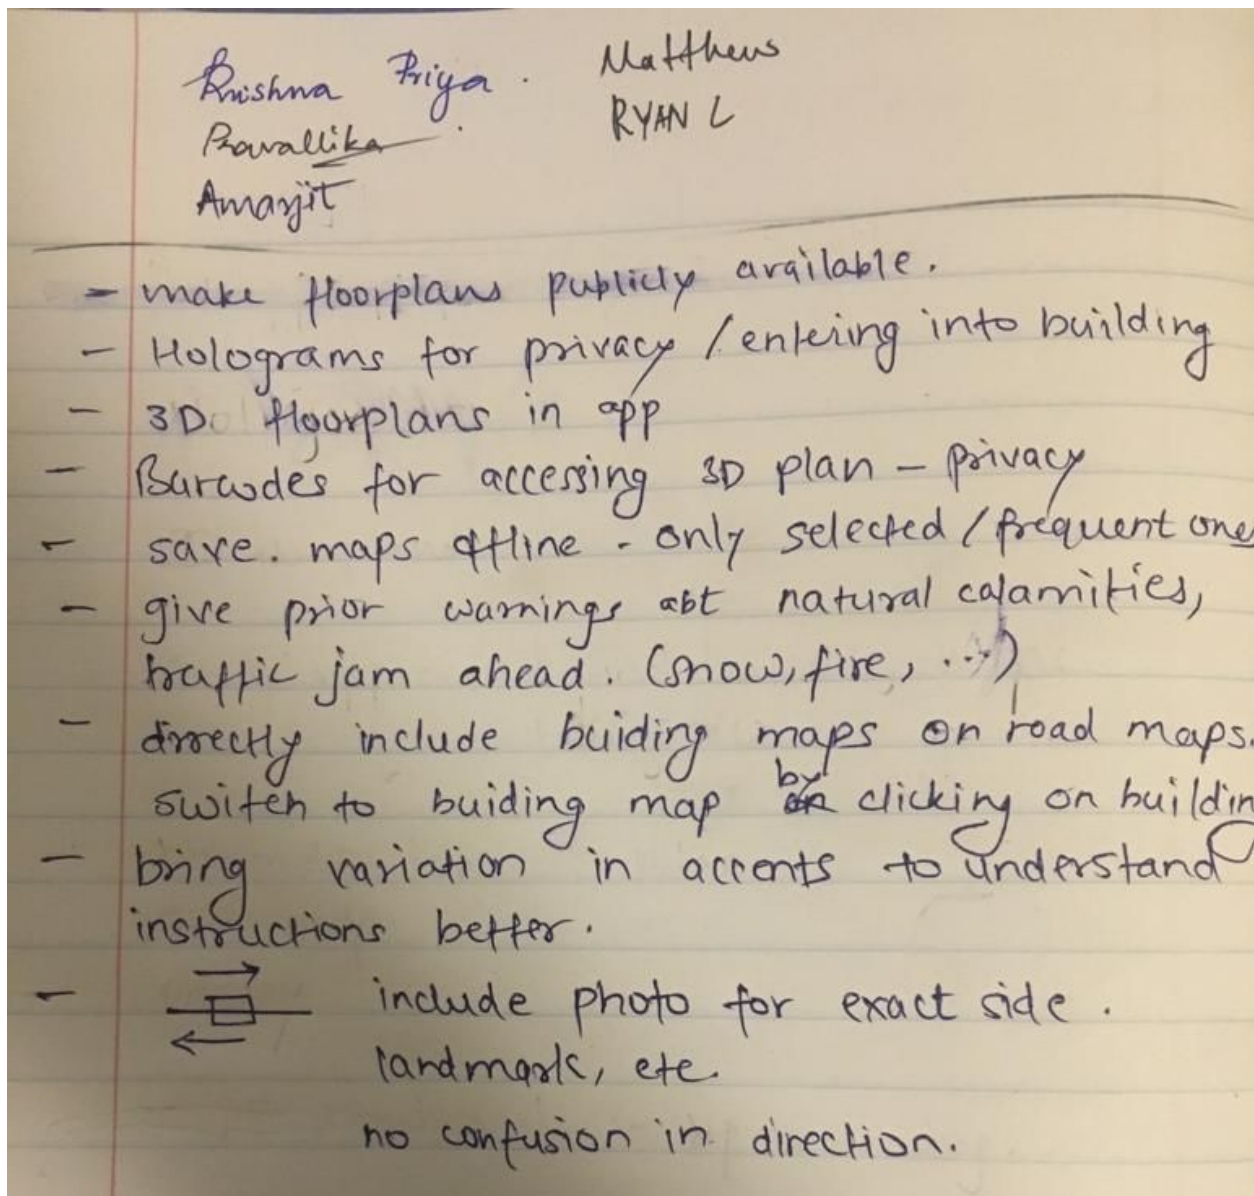 Krishna Priya.
Matthews
Pravallika
RYAN L
Amarjit
- make floorplans publicly available.
- Holograms for privacy / entering into building
- 3D floorplans in app
- Barcodes for accessing 3D plan - privacy
- save. maps offline - only selected / frequent ones
- give prior warnings abt natural calamities,
traffic jam ahead. (snow, fire, ...)
- directly include buiding maps on road maps.
switch to buiding map by clicking on buildin
- bring variation in accents to understand
instructions better.
- include photo for exact side.
landmark, etc.
no confusion in direction.